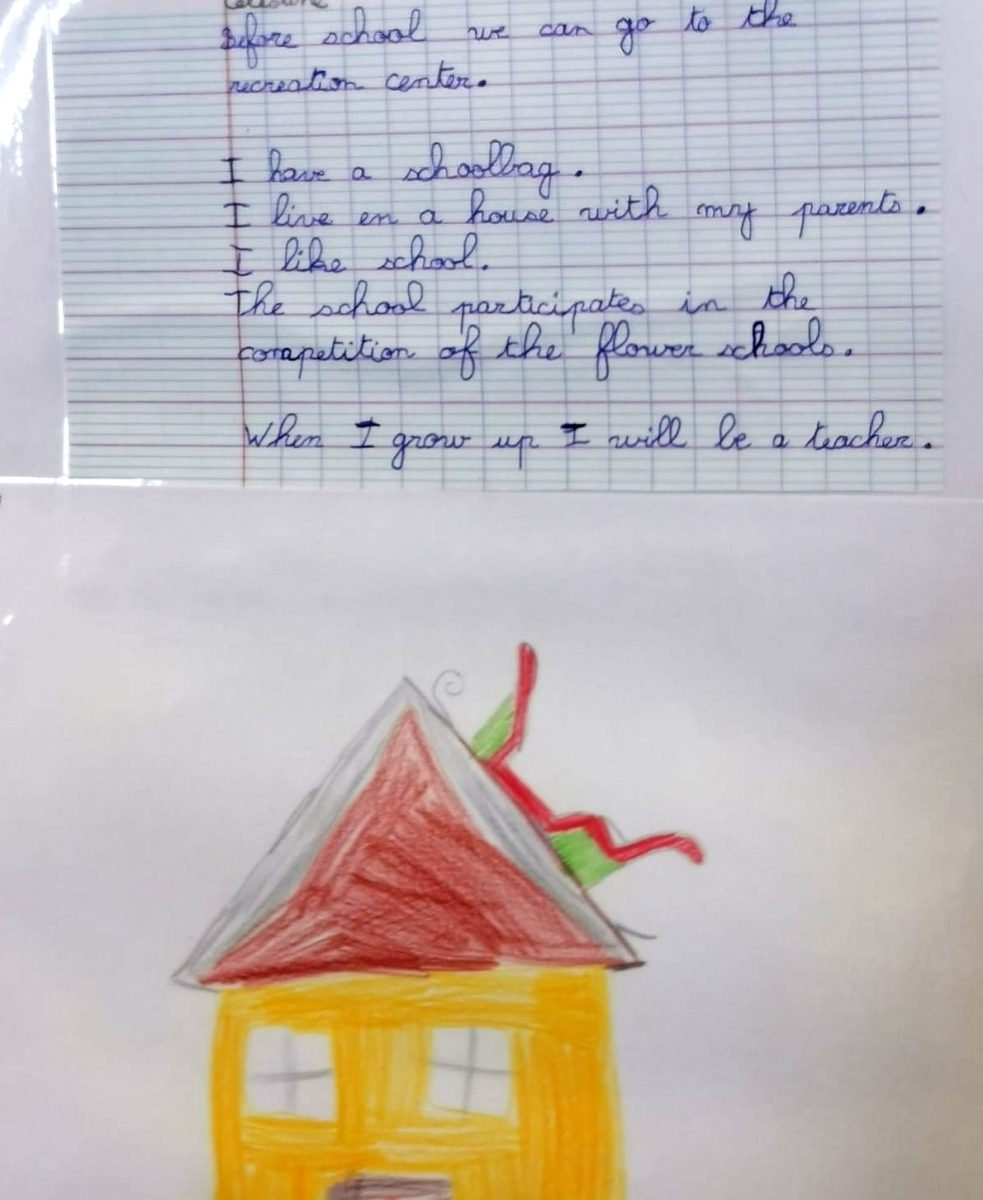 Before school we can go to the
recreation center.
I have a schoolbag.
I live en a house with my parents.
I like school.
The school participates in the
competition of the flower schools.
When I grow up I will be a teacher.